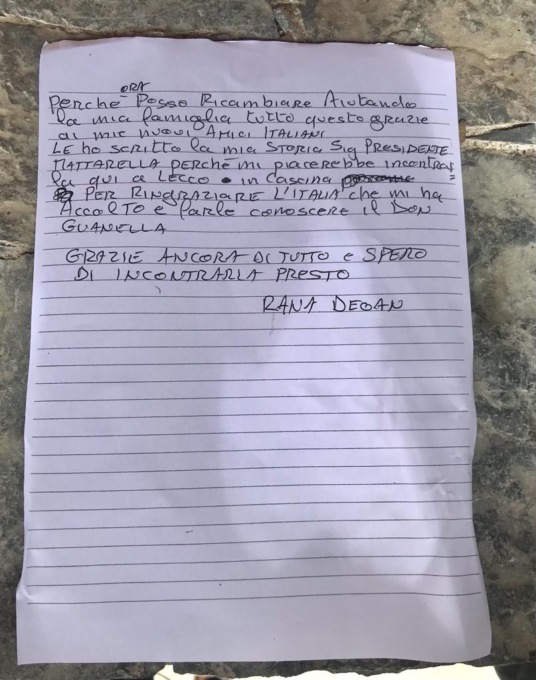 ORA
Perchè Posso Ricambiare Aiutando
la mia famiglia tutto questo grazie
ai miei nuovi AMICI ITALIANI
LE ho scritto la mia STORIA Sig PRESIDENTE
MATTARELLA perchè mi piacerebbe incontrar=
la qui a LECCO in cascina
PER RINGRAZIARE L'ITALIA che mi ha
ACCOLTO e farle conoscere il DON
GUANELLA
GRAZIE ANCORA DI TUTTO e SPERO
DI INCONTRARLA PRESTO
RANA DEOAN